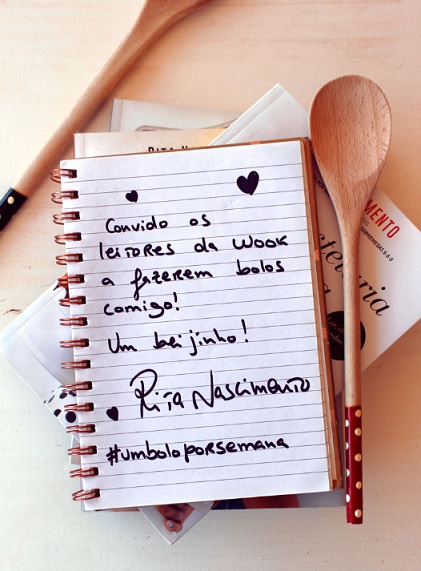 RITA N
Convido os
leitores da Wook
a fazerem bolos
comigo!
Um beijinho!
Rita Nascimento
#umboloporsemana
MENTO
SOBREMESAS